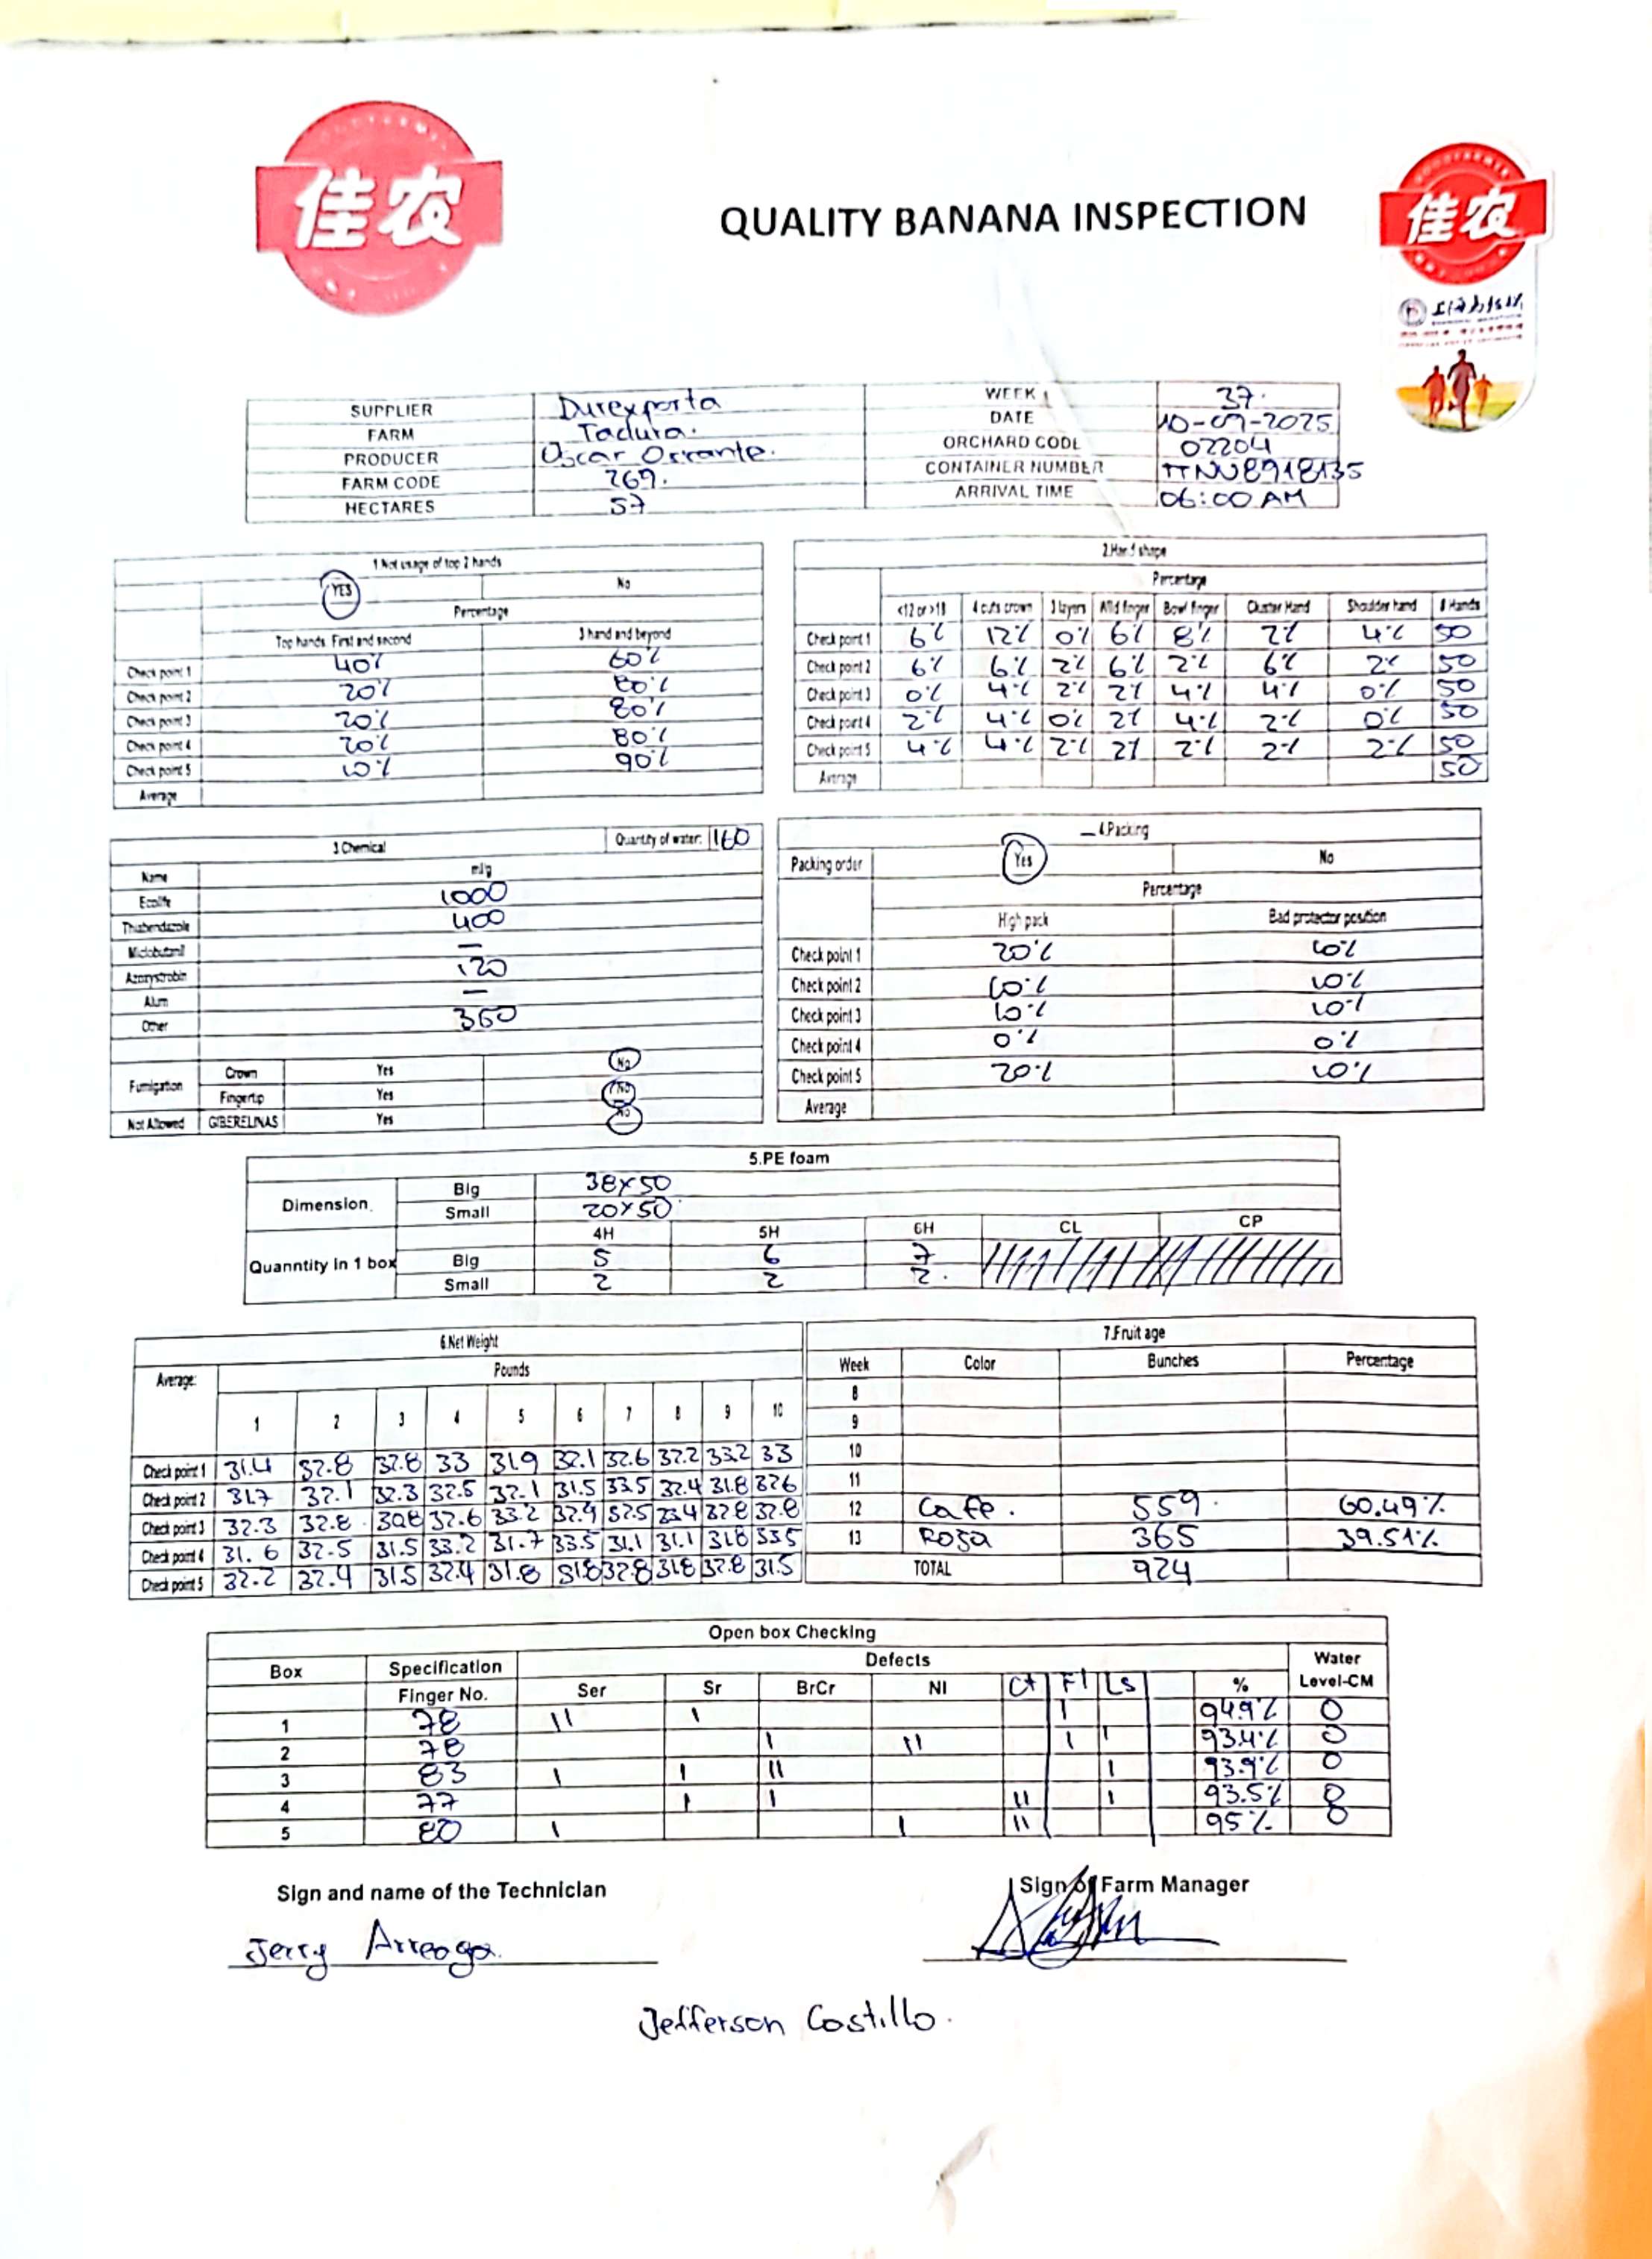 佳农
QUALITY BANANA INSPECTION
佳农
SUPPLIER Durexporta WEEK 37.
FARM Taclura. DATE 10-09-2025
PRODUCER Oscar Orrante. ORCHARD CODE 02204
FARM CODE 269. CONTAINER NUMBER TTNU8918135
HECTARES 57 ARRIVAL TIME 06:00 AM
1.Not usage of top 2 hands
YES No
Percentage
Top hands First and second 3 hand and beyond
Check point 1 40% 60%
Check point 2 20% 80%
Check point 3 20% 80%
Check point 4 20% 80%
Check point 5 10% 90%
Average
2.Hand shape
Percentage
<12 or >18 4 cuts crown 3 layers Wild finger Bowl finger Cluster Hand Shoulder hand # Hands
Check point 1 6% 12% 0% 6% 8% 2% 4% 50
Check point 2 6% 6% 2% 6% 2% 6% 2% 50
Check point 3 0% 4% 2% 2% 4% 4% 0% 50
Check point 4 2% 4% 0% 2% 4% 2% 0% 50
Check point 5 4% 4% 2% 2% 2% 2% 2% 50
Average 50
3.Chemical Quantity of water: 160
Name ml/g
Ecolife 1000
Thiabendazole 400
Miclobutanil —
Azoxystrobin 120
Alum —
Other 360
Fumigation Crown Yes No
Fingertip Yes No
Not Allowed GIBERELINAS Yes No
4.Packing
Packing order Yes No
Percentage
High pack Bad protector position
Check point 1 20% 10%
Check point 2 10% 10%
Check point 3 10% 10%
Check point 4 0% 0%
Check point 5 20% 10%
Average
5.PE foam
Dimension. Big 38x50
Small 20x50
4H 5H 6H CL CP
Quanntity in 1 box Big 5 6 7
Small 2 2 2.
6.Net Weight
Average: Pounds
1 2 3 4 5 6 7 8 9 10
Check point 1 31.4 32.8 32.8 33 31.9 32.1 32.6 32.2 33.2 33
Check point 2 31.7 32.1 32.3 32.5 32.1 31.5 33.5 32.4 31.8 32.6
Check point 3 32.3 32.8 30.8 32.6 33.2 32.9 32.5 23.4 32.8 32.8
Check point 4 31.6 32.5 31.5 33.2 31.7 33.5 31.1 31.1 31.8 33.5
Check point 5 32.2 32.4 31.5 32.4 31.8 31.8 32.8 31.8 32.8 31.5
7.Fruit age
Week Color Bunches Percentage
8
9
10
11
12 Cafe. 559. 60.49%
13 Rosa 365 39.51%
TOTAL 924
Open box Checking
Box Specification Defects Water
Finger No. Ser Sr BrCr NI Ct Fl Ls % Level-CM
1 78 II I I 94.9% 0
2 78 I II I I 93.4% 0
3 83 I I II I 93.9% 0
4 77 I I II I 93.5% 0
5 80 I I II 95% 0
Sign and name of the Technician Sign of Farm Manager
Jerry Arreaga.
Jefferson Castillo.